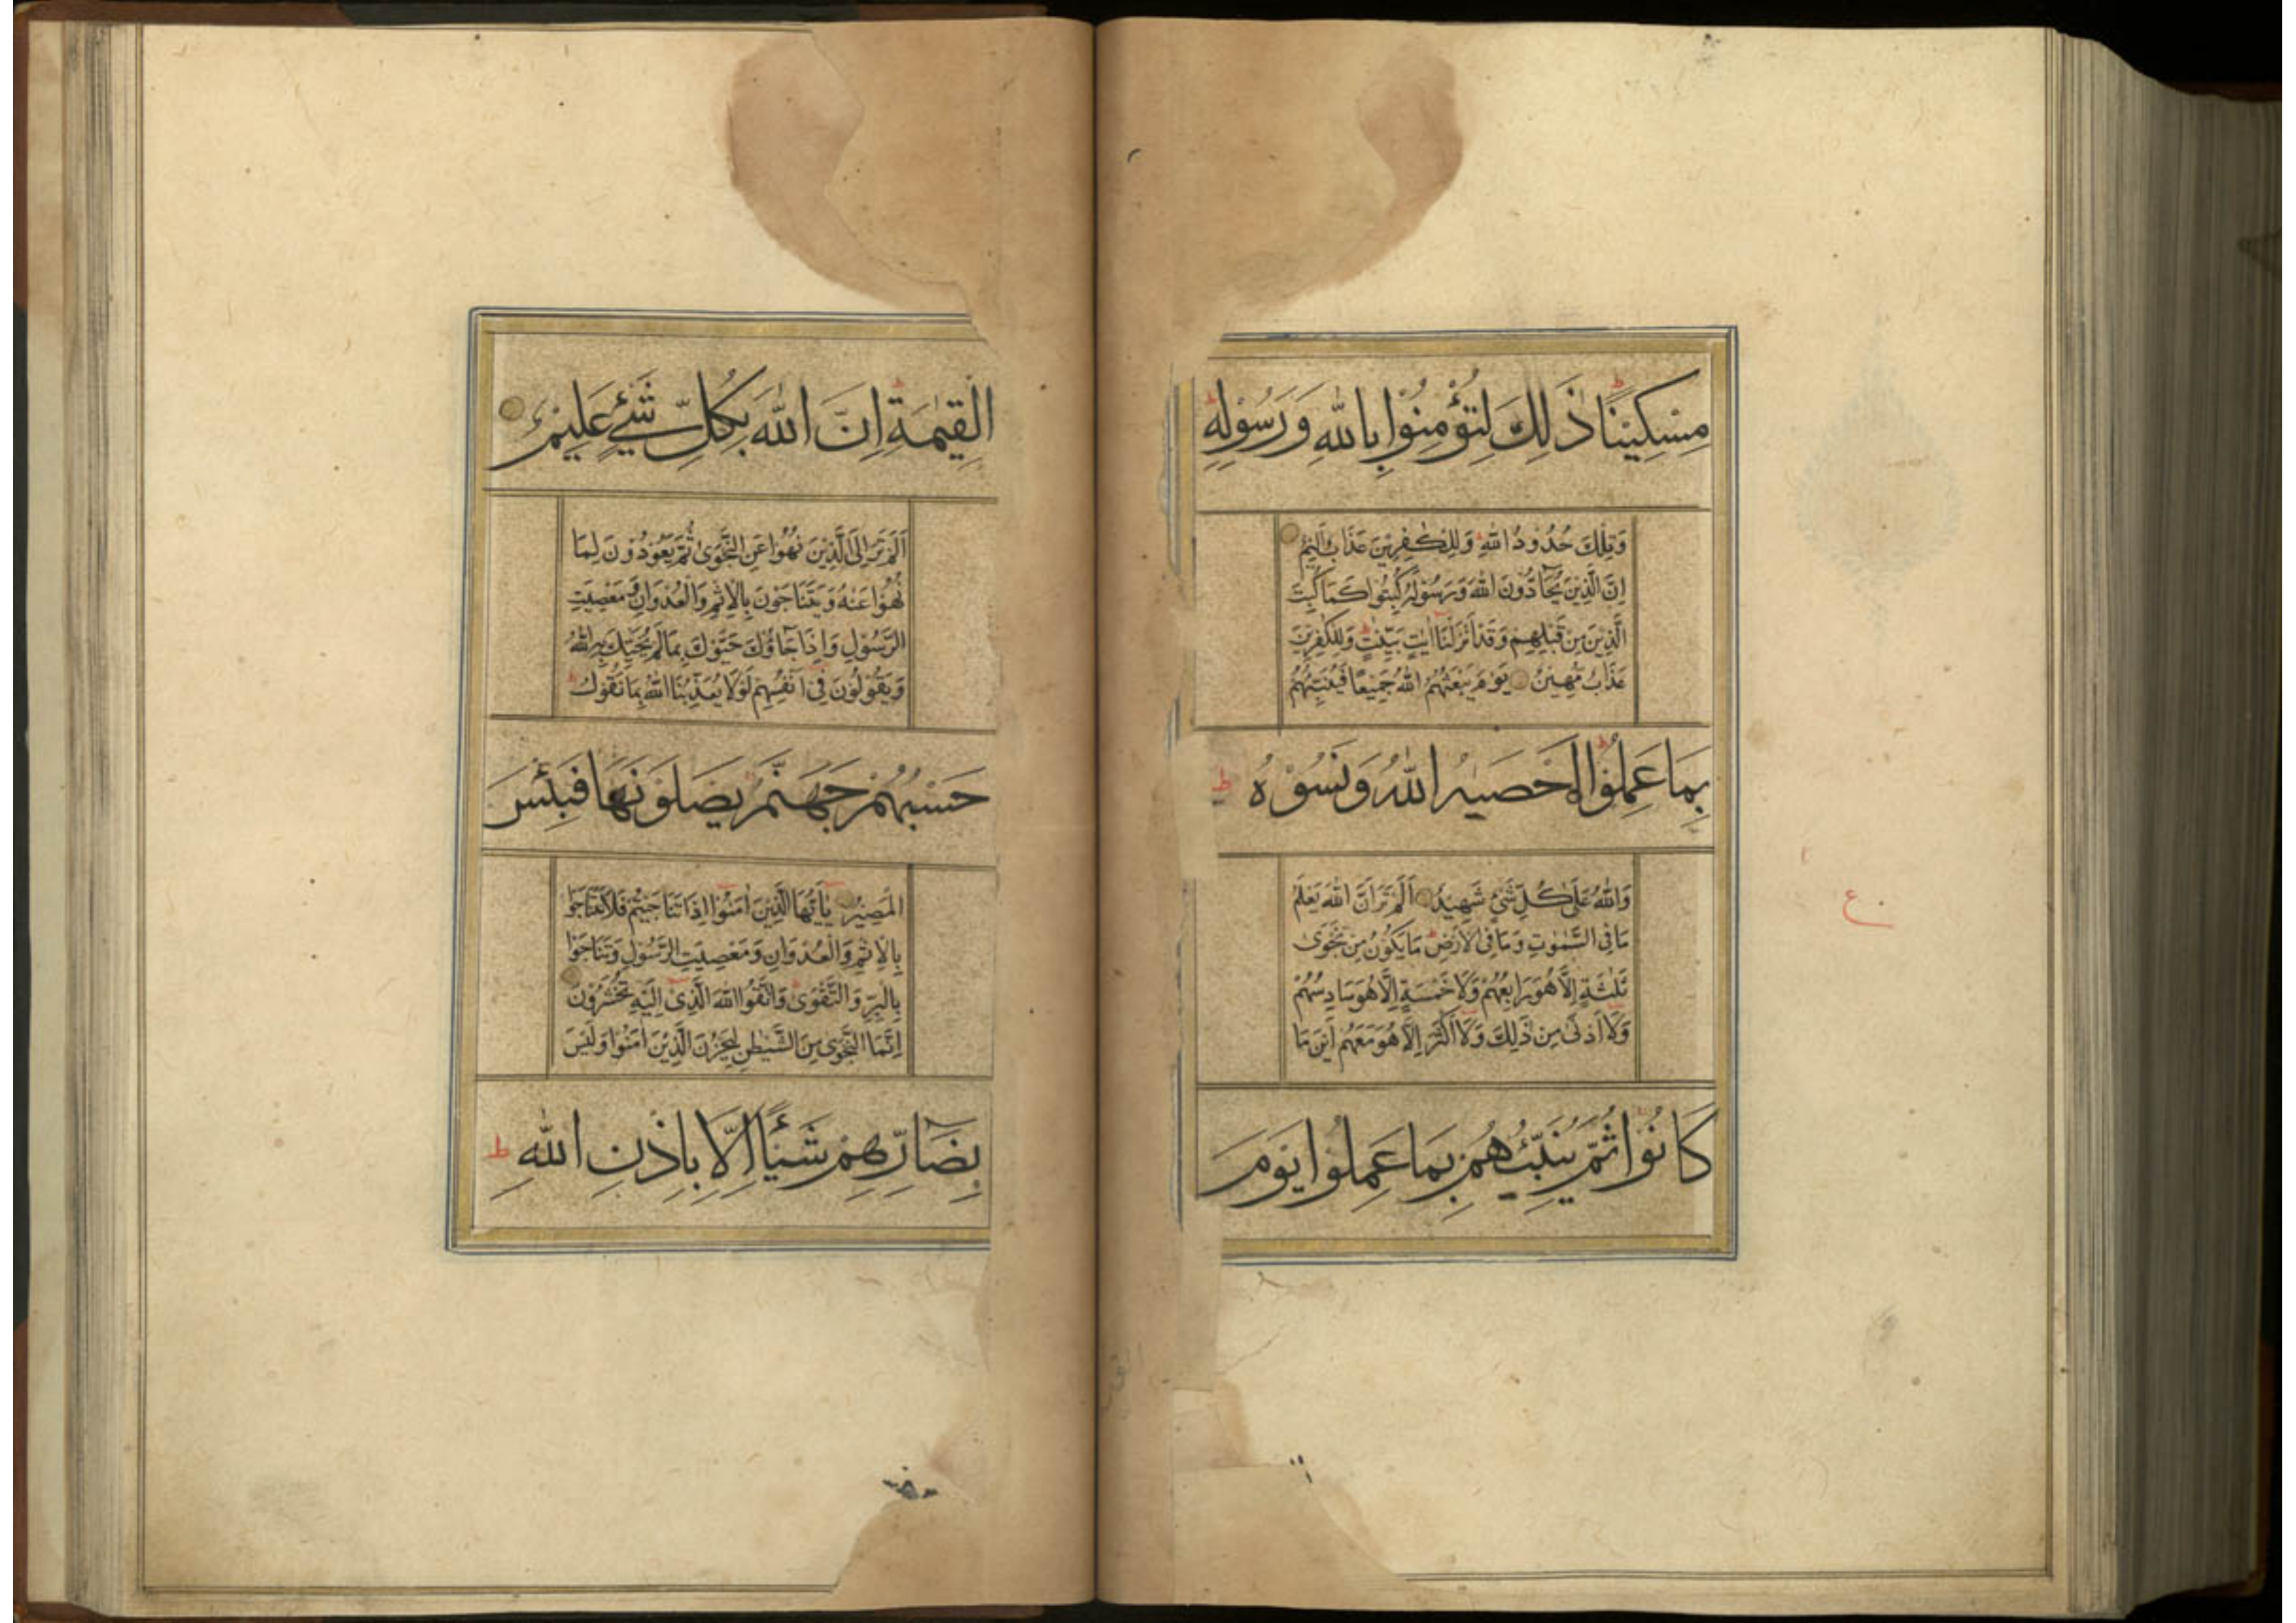 مِسْكِيْنًا ذٰلِكَ لِتُؤْمِنُوْا بِاللّٰهِ وَرَسُوْلِهٖ ط
وَتِلْكَ حُدُوْدُ اللّٰهِ وَلِلْكٰفِرِيْنَ عَذَابٌ اَلِيْمٌ
اِنَّ الَّذِيْنَ يُحَآدُّوْنَ اللّٰهَ وَرَسُوْلَهٗ كُبِتُوْا كَمَا كُبِتَ
الَّذِيْنَ مِنْ قَبْلِهِمْ وَقَدْ اَنْزَلْنَا اٰيٰتٍ بَيِّنٰتٍ وَلِلْكٰفِرِيْنَ
عَذَابٌ مُّهِيْنٌ يَوْمَ يَبْعَثُهُمُ اللّٰهُ جَمِيْعًا فَيُنَبِّئُهُمْ
بِمَا عَمِلُوْا اَحْصٰىهُ اللّٰهُ وَنَسُوْهُ ط
وَاللّٰهُ عَلٰى كُلِّ شَيْءٍ شَهِيْدٌ اَلَمْ تَرَ اَنَّ اللّٰهَ يَعْلَمُ
مَا فِى السَّمٰوٰتِ وَمَا فِى الْاَرْضِ مَا يَكُوْنُ مِنْ نَّجْوٰى
ثَلٰثَةٍ اِلَّا هُوَ رَابِعُهُمْ وَلَا خَمْسَةٍ اِلَّا هُوَ سَادِسُهُمْ
وَلَا اَدْنٰى مِنْ ذٰلِكَ وَلَا اَكْثَرَ اِلَّا هُوَ مَعَهُمْ اَيْنَ مَا
كَانُوْا ثُمَّ يُنَبِّئُهُمْ بِمَا عَمِلُوْا يَوْمَ
ع
الْقِيٰمَةِ اِنَّ اللّٰهَ بِكُلِّ شَيْءٍ عَلِيْمٌ
اَلَمْ تَرَ اِلَى الَّذِيْنَ نُهُوْا عَنِ النَّجْوٰى ثُمَّ يَعُوْدُوْنَ لِمَا
نُهُوْا عَنْهُ وَيَتَنَاجَوْنَ بِالْاِثْمِ وَالْعُدْوَانِ وَمَعْصِيَتِ
الرَّسُوْلِ وَاِذَا جَآؤُكَ حَيَّوْكَ بِمَا لَمْ يُحَيِّكَ بِهِ اللّٰهُ
وَيَقُوْلُوْنَ فِىْ اَنْفُسِهِمْ لَوْلَا يُعَذِّبُنَا اللّٰهُ بِمَا نَقُوْلُ ط
حَسْبُهُمْ جَهَنَّمُ يَصْلَوْنَهَا فَبِئْسَ
الْمَصِيْرُ يٰاَيُّهَا الَّذِيْنَ اٰمَنُوْا اِذَا تَنَاجَيْتُمْ فَلَا تَتَنَاجَوْا
بِالْاِثْمِ وَالْعُدْوَانِ وَمَعْصِيَتِ الرَّسُوْلِ وَتَنَاجَوْا
بِالْبِرِّ وَالتَّقْوٰى وَاتَّقُوا اللّٰهَ الَّذِىْ اِلَيْهِ تُحْشَرُوْنَ
اِنَّمَا النَّجْوٰى مِنَ الشَّيْطٰنِ لِيَحْزُنَ الَّذِيْنَ اٰمَنُوْا وَلَيْسَ
بِضَآرِّهِمْ شَيْئًا اِلَّا بِاِذْنِ اللّٰهِ ط